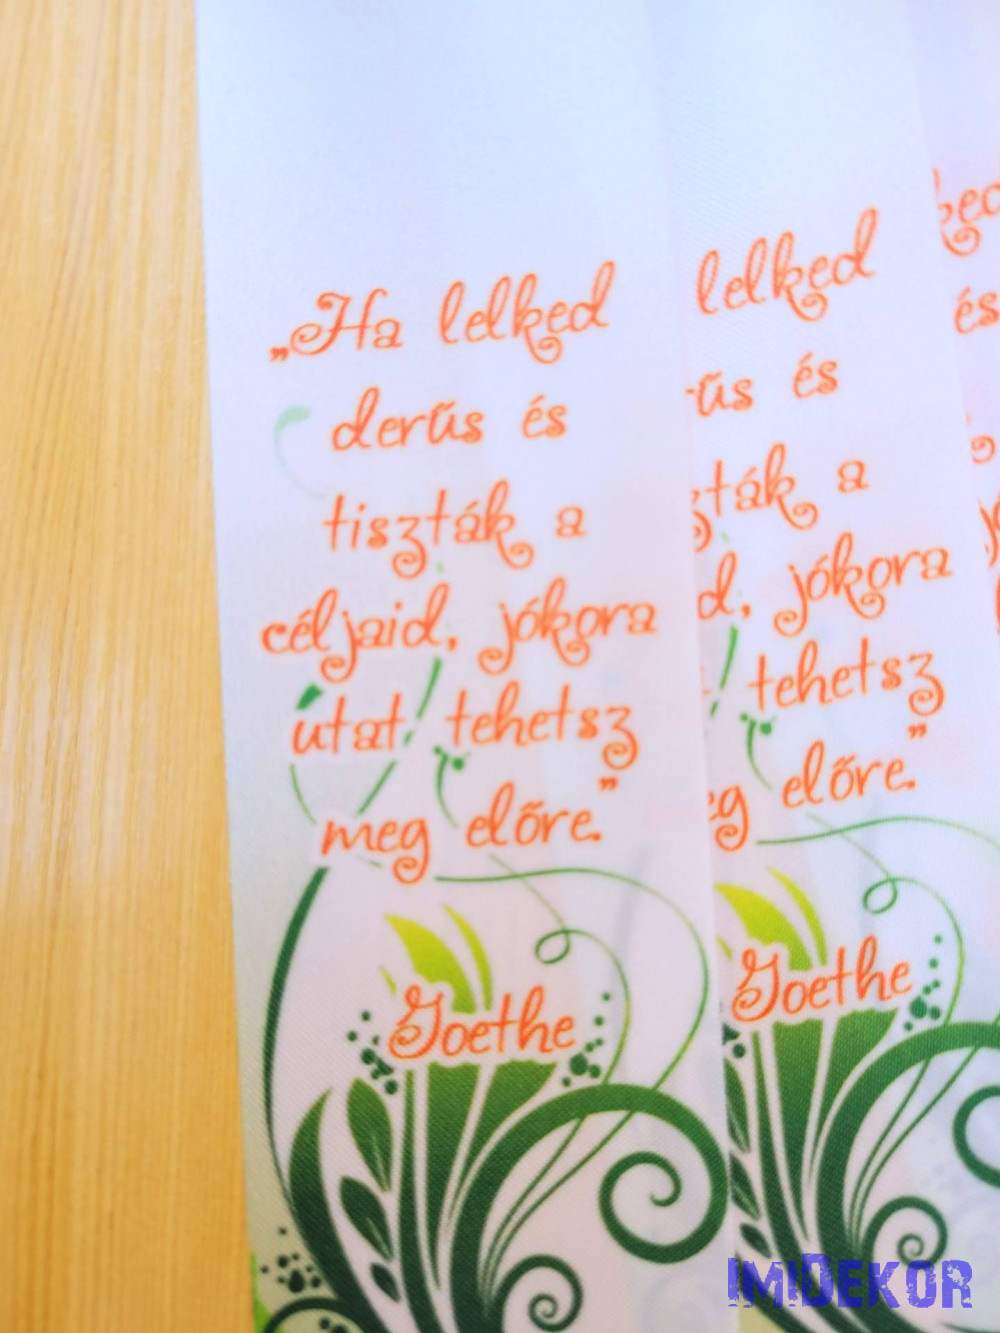 „Ha lelked
derűs és
tiszták a
céljaid, jókora
útat tehetsz
meg előre.”
Goethe
lelked
és
a
jókora
tehetsz
előre.”
Goethe
és
IMIDEKOR